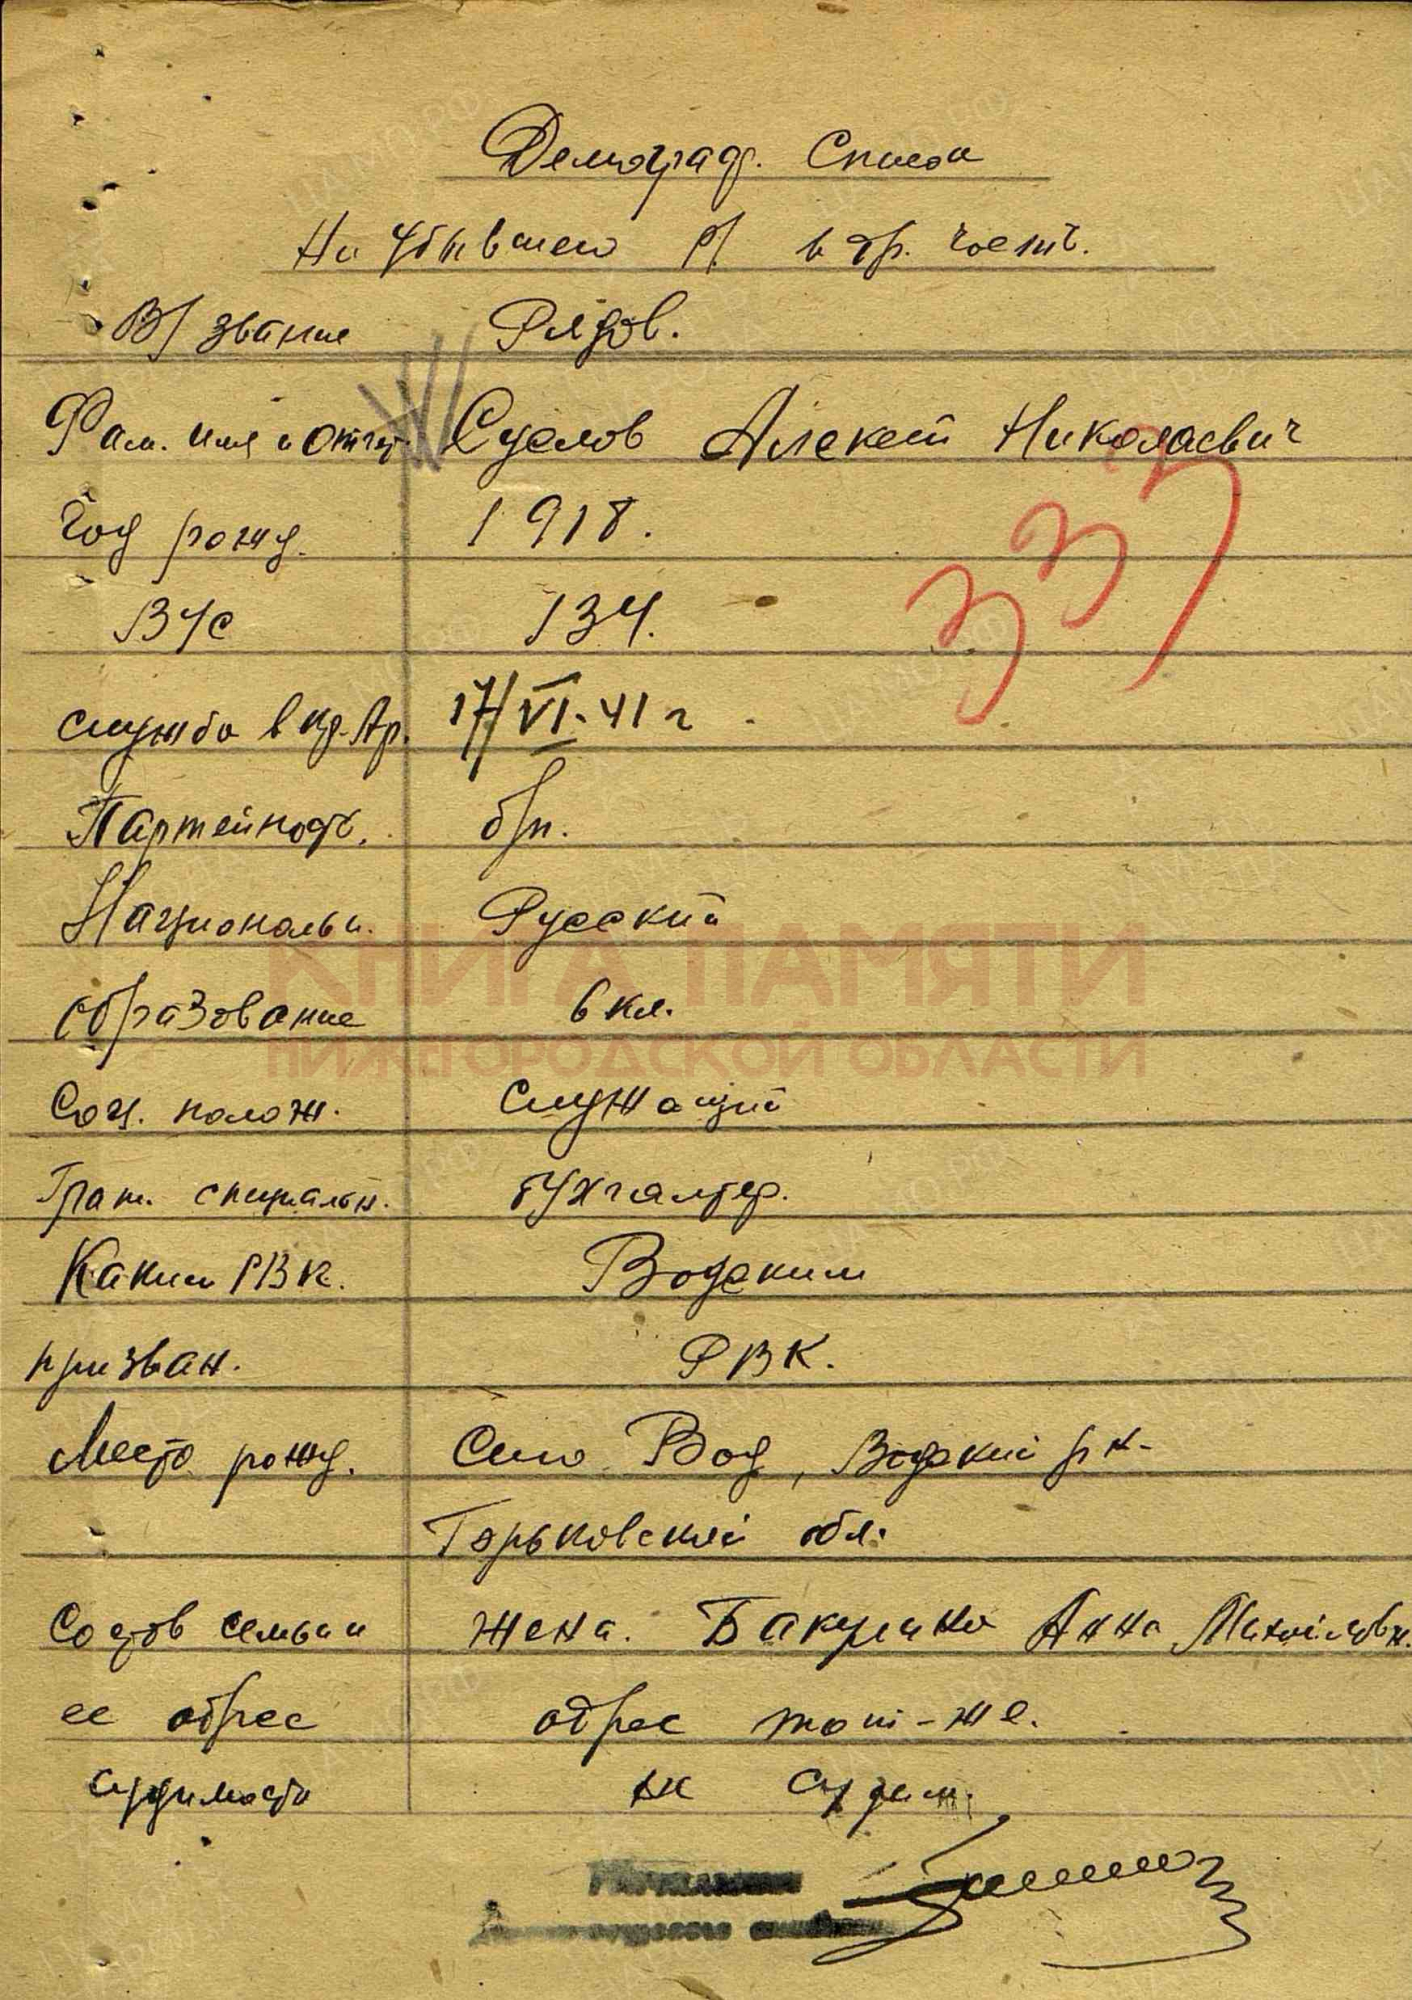 Демограф. Список
На убывшего р/ в др. часть.
В/ звание Рядов.
Фам. имя и отч. Суслов Алексей Николаевич
333
Год рожд. 1918.
ВУС 134.
служба в кр. Ар. 17/VI-41 г
Партейность. б/п.
Национальн. Русский
КНИГА ПАМЯТИ
образование 6 кл.
НИЖЕГОРОДСКОЙ ОБЛАСТИ
Соц. полож. служащий
Граж. специальн. бухгалтер.
Каким РВК. Водским
призван. РВК.
Место рожд. Село Вод, Водский р-н-
Горьковской обл.
Состав семьи жена. Бакулина Анна Михайловн.
ее адрес адрес тот-же.
судимость не судим.